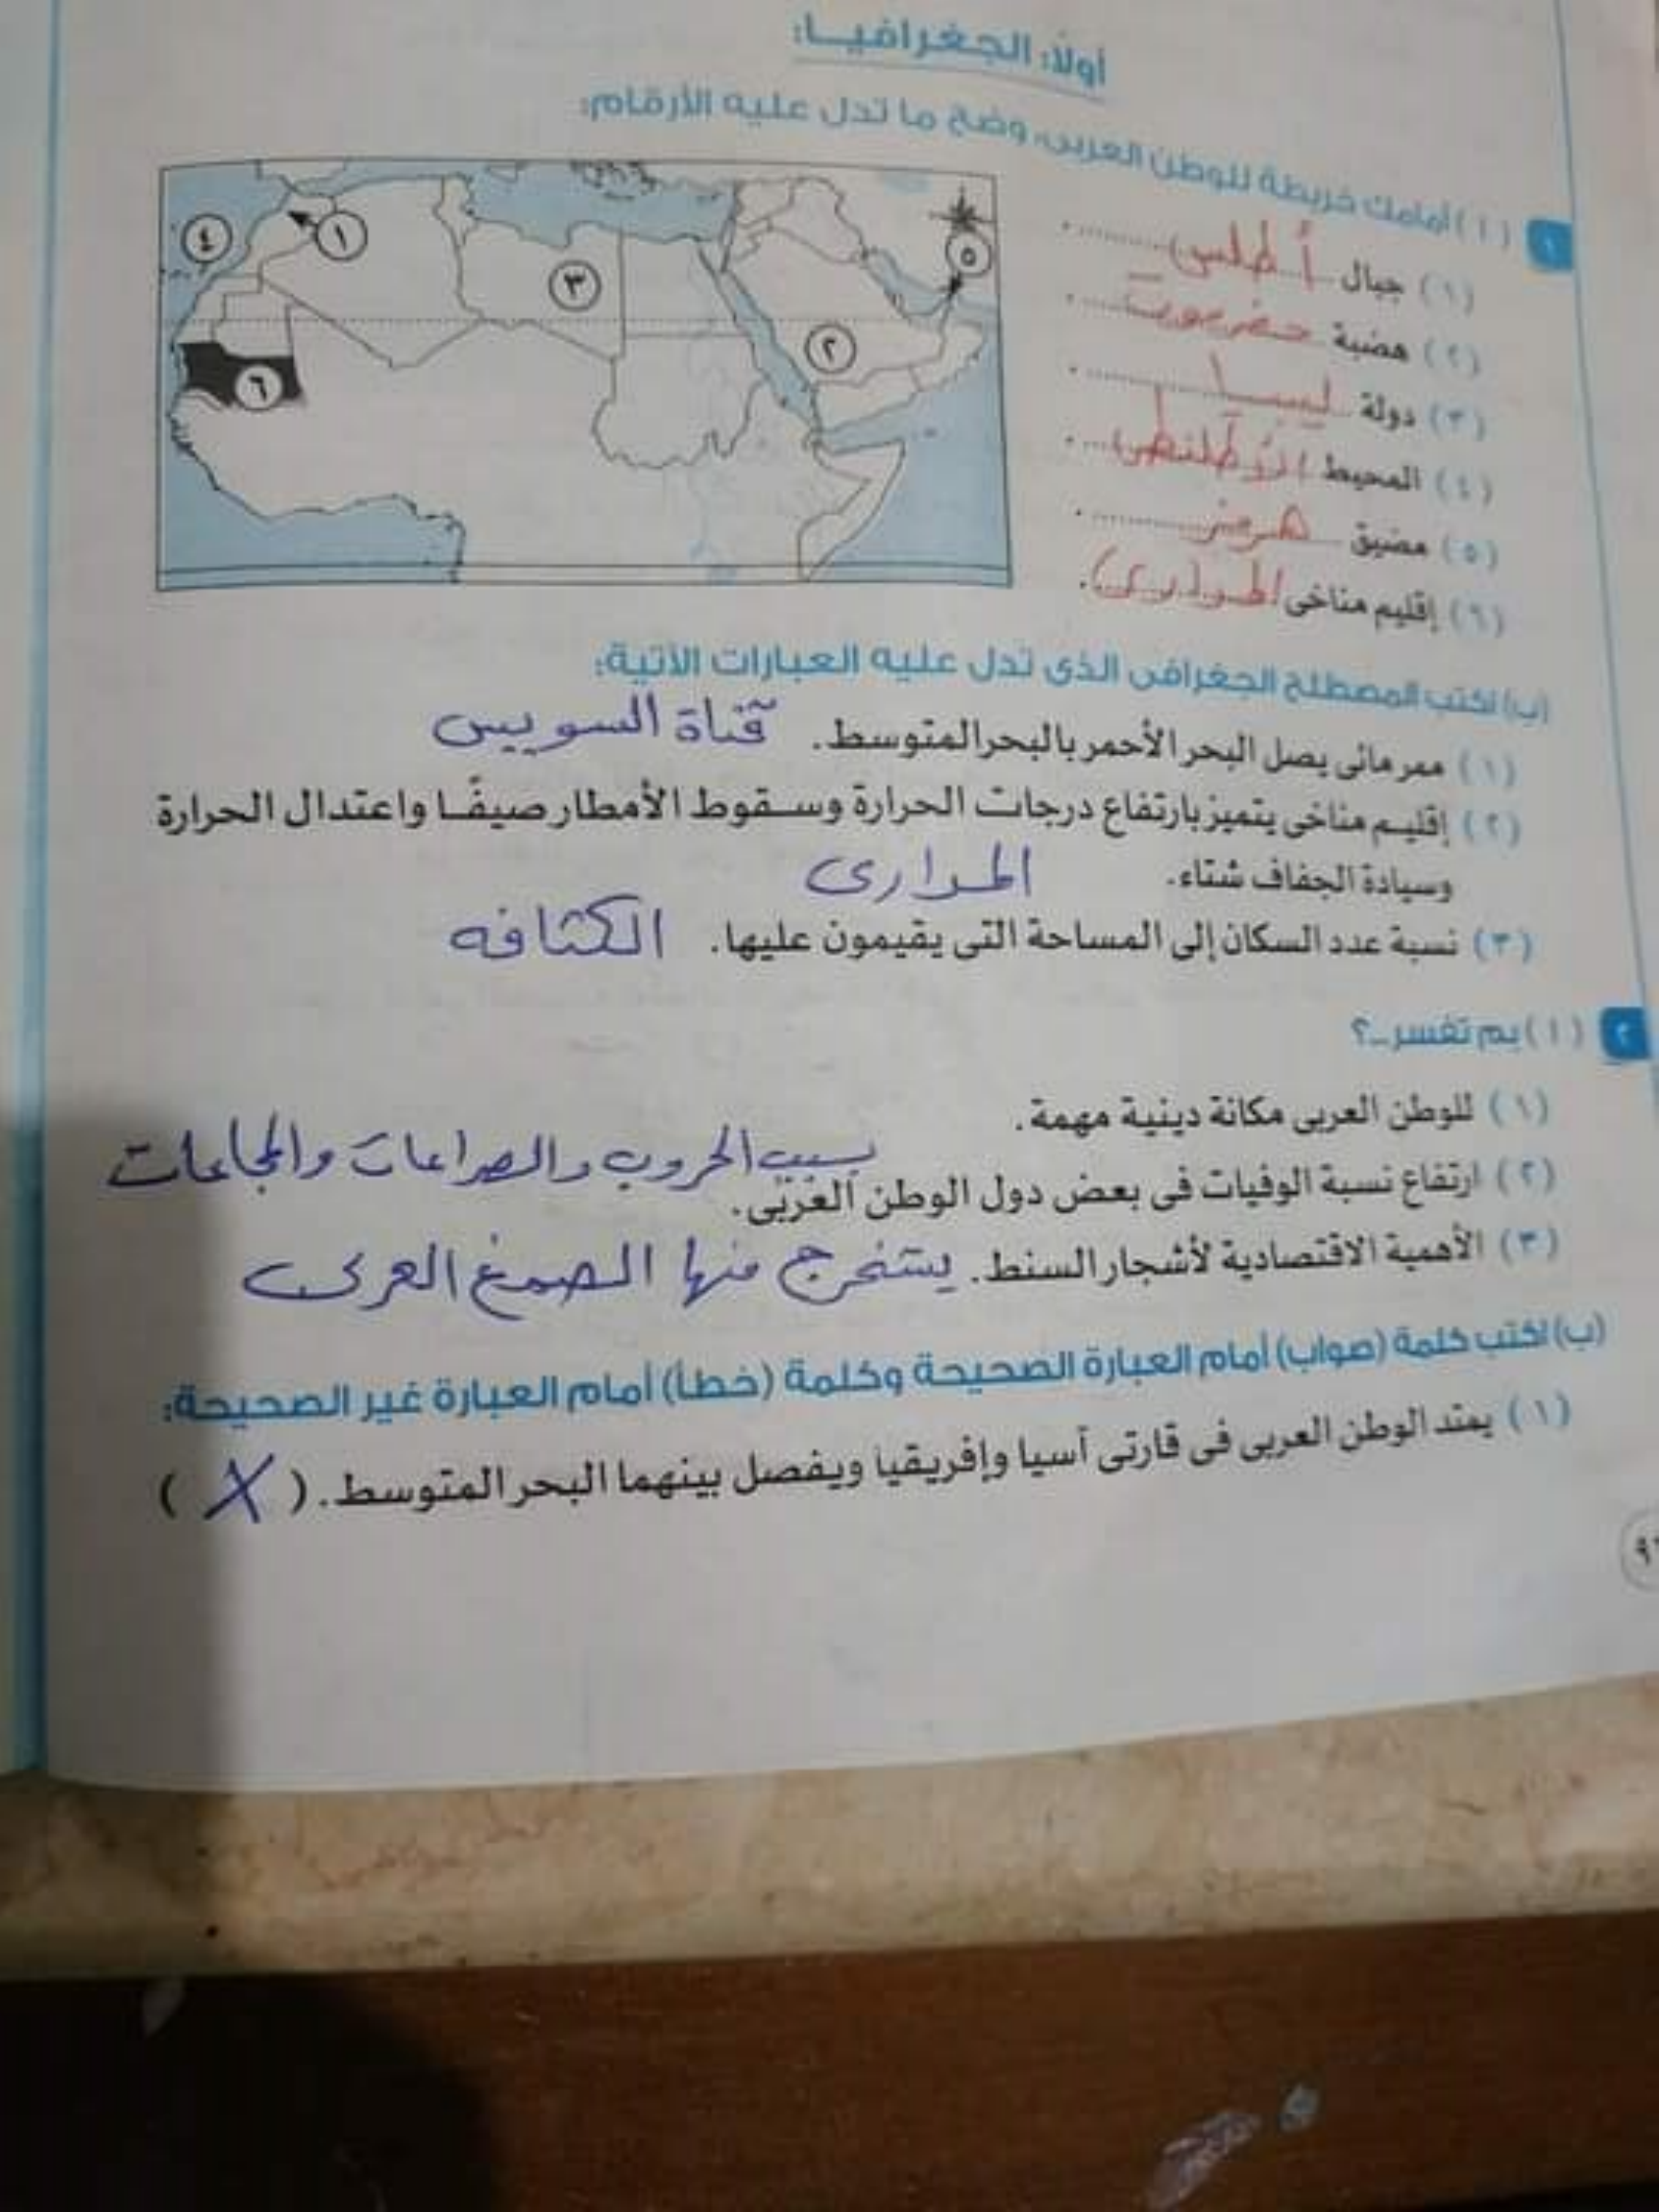 أولًا: الجغرافيا:
١ ( أ ) أمامك خريطة للوطن العربى، وضح ما تدل عليه الأرقام:
(١) جبال أطلس
(٢) هضبة حضرموت
(٣) دولة ليبيا
(٤) المحيط الأطلنطى
(٥) مضيق هرمز
(٦) إقليم مناخى المدارى
١
٢
٣
٤
٥
٦
(ب) اكتب المصطلح الجغرافى الذى تدل عليه العبارات الآتية:
(١) ممر مائى يصل البحر الأحمر بالبحر المتوسط. قناة السويس
(٢) إقليم مناخى يتميز بارتفاع درجات الحرارة وسقوط الأمطار صيفًا واعتدال الحرارة
وسيادة الجفاف شتاء. المدارى
(٣) نسبة عدد السكان إلى المساحة التى يقيمون عليها. الكثافه
٢ ( أ ) بم تفسر..؟
(١) للوطن العربى مكانة دينية مهمة.
بسبب الحروب والصراعات والمجاعات
(٢) ارتفاع نسبة الوفيات فى بعض دول الوطن العربى.
(٣) الأهمية الاقتصادية لأشجار السنط. يستخرج منها الصمغ العربى
(ب) اكتب كلمة (صواب) أمام العبارة الصحيحة وكلمة (خطأ) أمام العبارة غير الصحيحة:
(١) يمتد الوطن العربى فى قارتى آسيا وإفريقيا ويفصل بينهما البحر المتوسط. ( X )